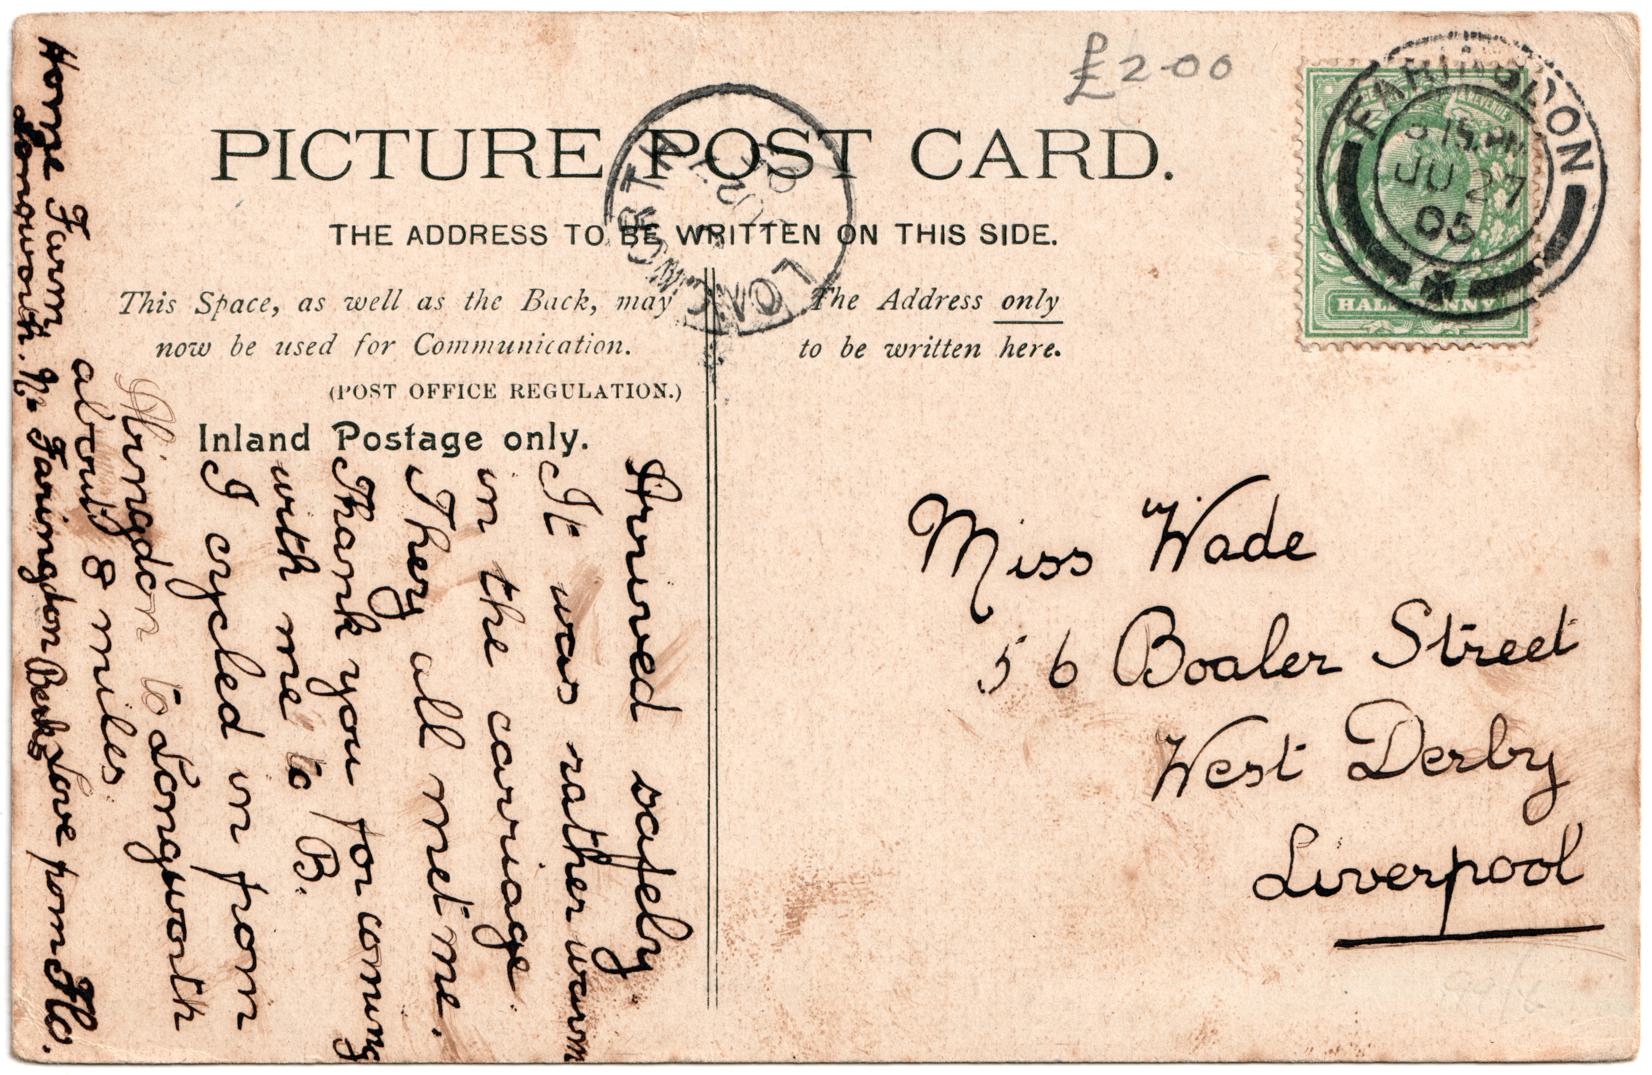 £2-00
PICTURE POST CARD.
THE ADDRESS TO BE WRITTEN ON THIS SIDE.
This Space, as well as the Back, may
now be used for Communication.
(POST OFFICE REGULATION.)
Inland Postage only.
The Address only
to be written here.
LONGWORTH
FARINGDON
8 15. PM
JU 27
05
HALFPENNY
Miss Wade
56 Boaler Street
West Derby
Liverpool
Arrived safely
It was rather warm
in the carriage.
They all met me.
Thank you for coming
with me to B.
I cycled in from
Abingdon to Longworth
about 8 miles
Home Farm
Longworth. Nr Faringdon Berks Love from Flo.